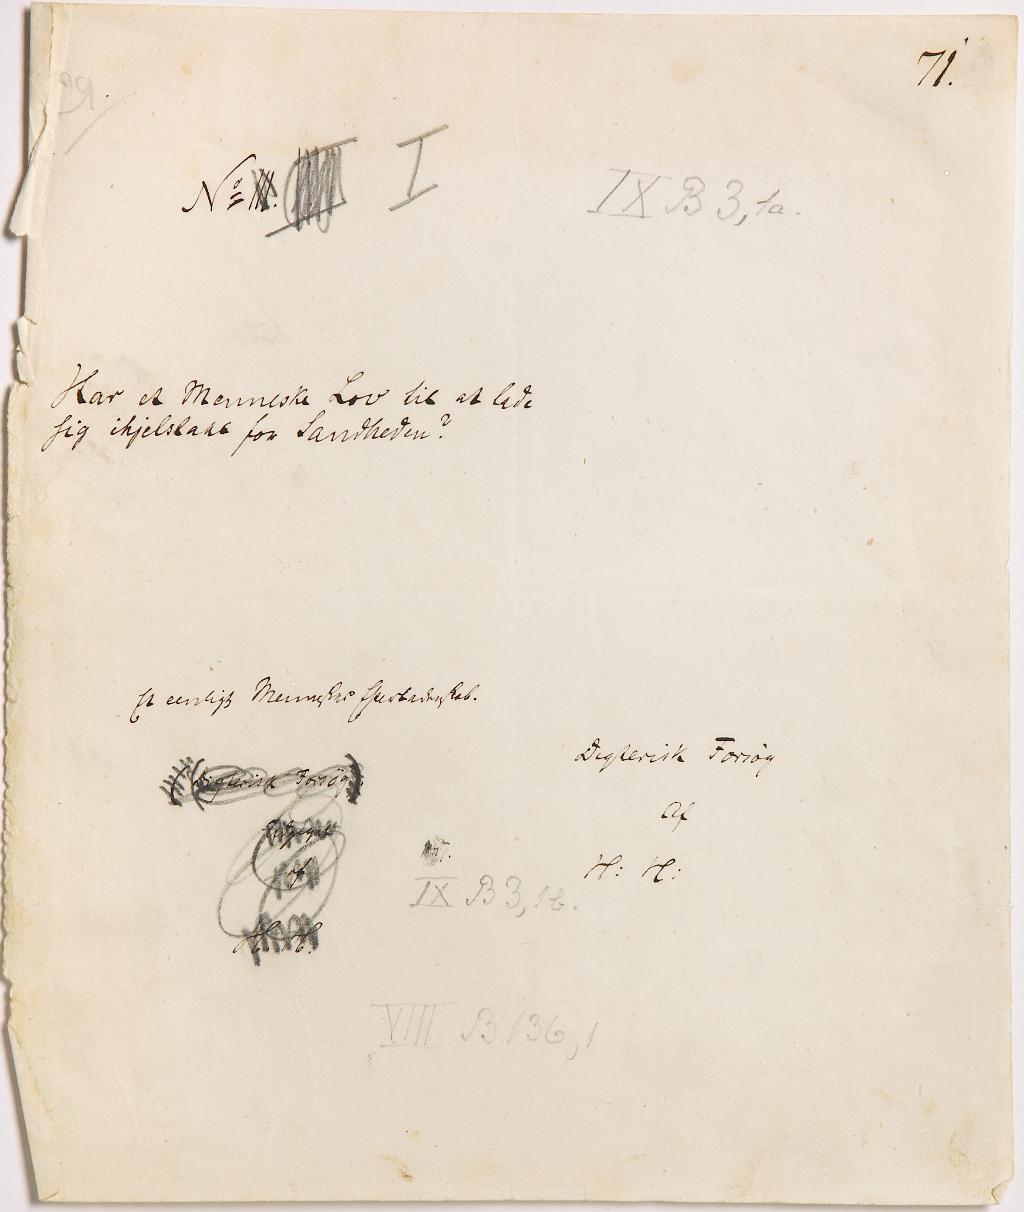 71.
No III. I
IX B 3, 1a.
Har et Menneske Lov til at lade
sig ihjelslaae for Sandheden?
Et eenligt Menneskes Efterladenskab.
(Digterisk Forsøg.)
Digterisk Forsøg
af
Af
H. H.
H: H:
IX B 3, 1b.
VIII B 136, 1